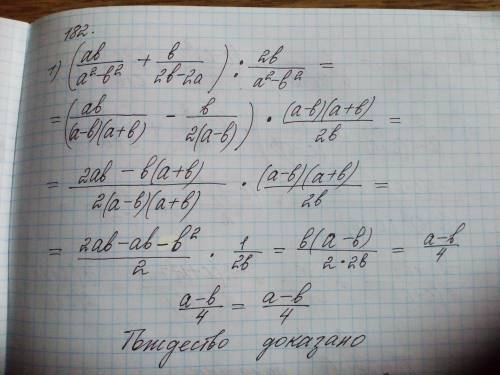 182.
1) (ab/(a²-b²) + b/(2b-2a)) : 2b/(a²-b²) =
= (ab/((a-b)(a+b)) - b/(2(a-b))) · (a-b)(a+b)/2b =
= (2ab - b(a+b))/(2(a-b)(a+b)) · (a-b)(a+b)/2b =
= (2ab-ab-b²)/2 · 1/2b = b(a-b)/(2·2b) = (a-b)/4
(a-b)/4 = (a-b)/4
Тождество доказано